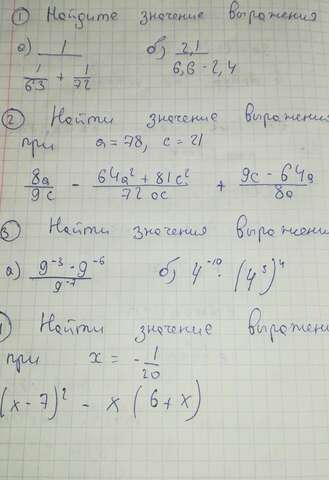 ① Найдите значение выражения
а) 1 / (1/63 + 1/72) б) 2,1 / (6,6 - 2,4)
② Найти значение выражени
при a = 78, c = 21
8a/9c - (64a² + 81c²)/72ac + (9c - 64a)/8a
③ Найти значения выражени
а) (9⁻³ · 9⁻⁶)/9⁻⁷ б) 4⁻¹⁰ · (4³)⁴
Найти значение выражени
при x = -1/20
(x - 7)² - x (6 + x)